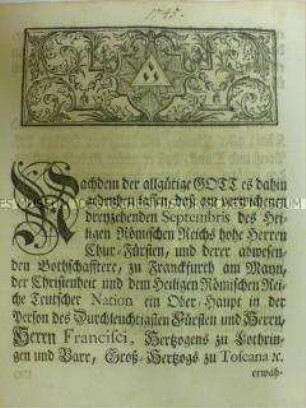 1745.
Nachdem der allgütige GOTT es dahin
gedeyhen lassen, daß am verwichenen
dreyzehenden Septembris des Hei-
ligen Römischen Reichs hohe Herren
Chur-Fürsten, und derer abwesen-
den Bothschafftere, zu Franckfurth am Mayn,
der Christenheit und dem Heiligen Römischen Rei-
che Teutscher Nation ein Ober-Haupt in der
Person des Durchleuchtigsten Fürsten und Herrn,
Herrn Francisci, Hertzogens zu Lothrin-
gen und Barr, Groß-Hertzogs zu Toscana ꝛc.
erwäh-